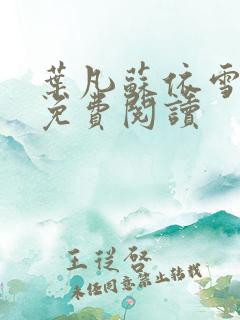 葉凡蘇依雪
免費閱讀
王從啓
未经同意禁止转载